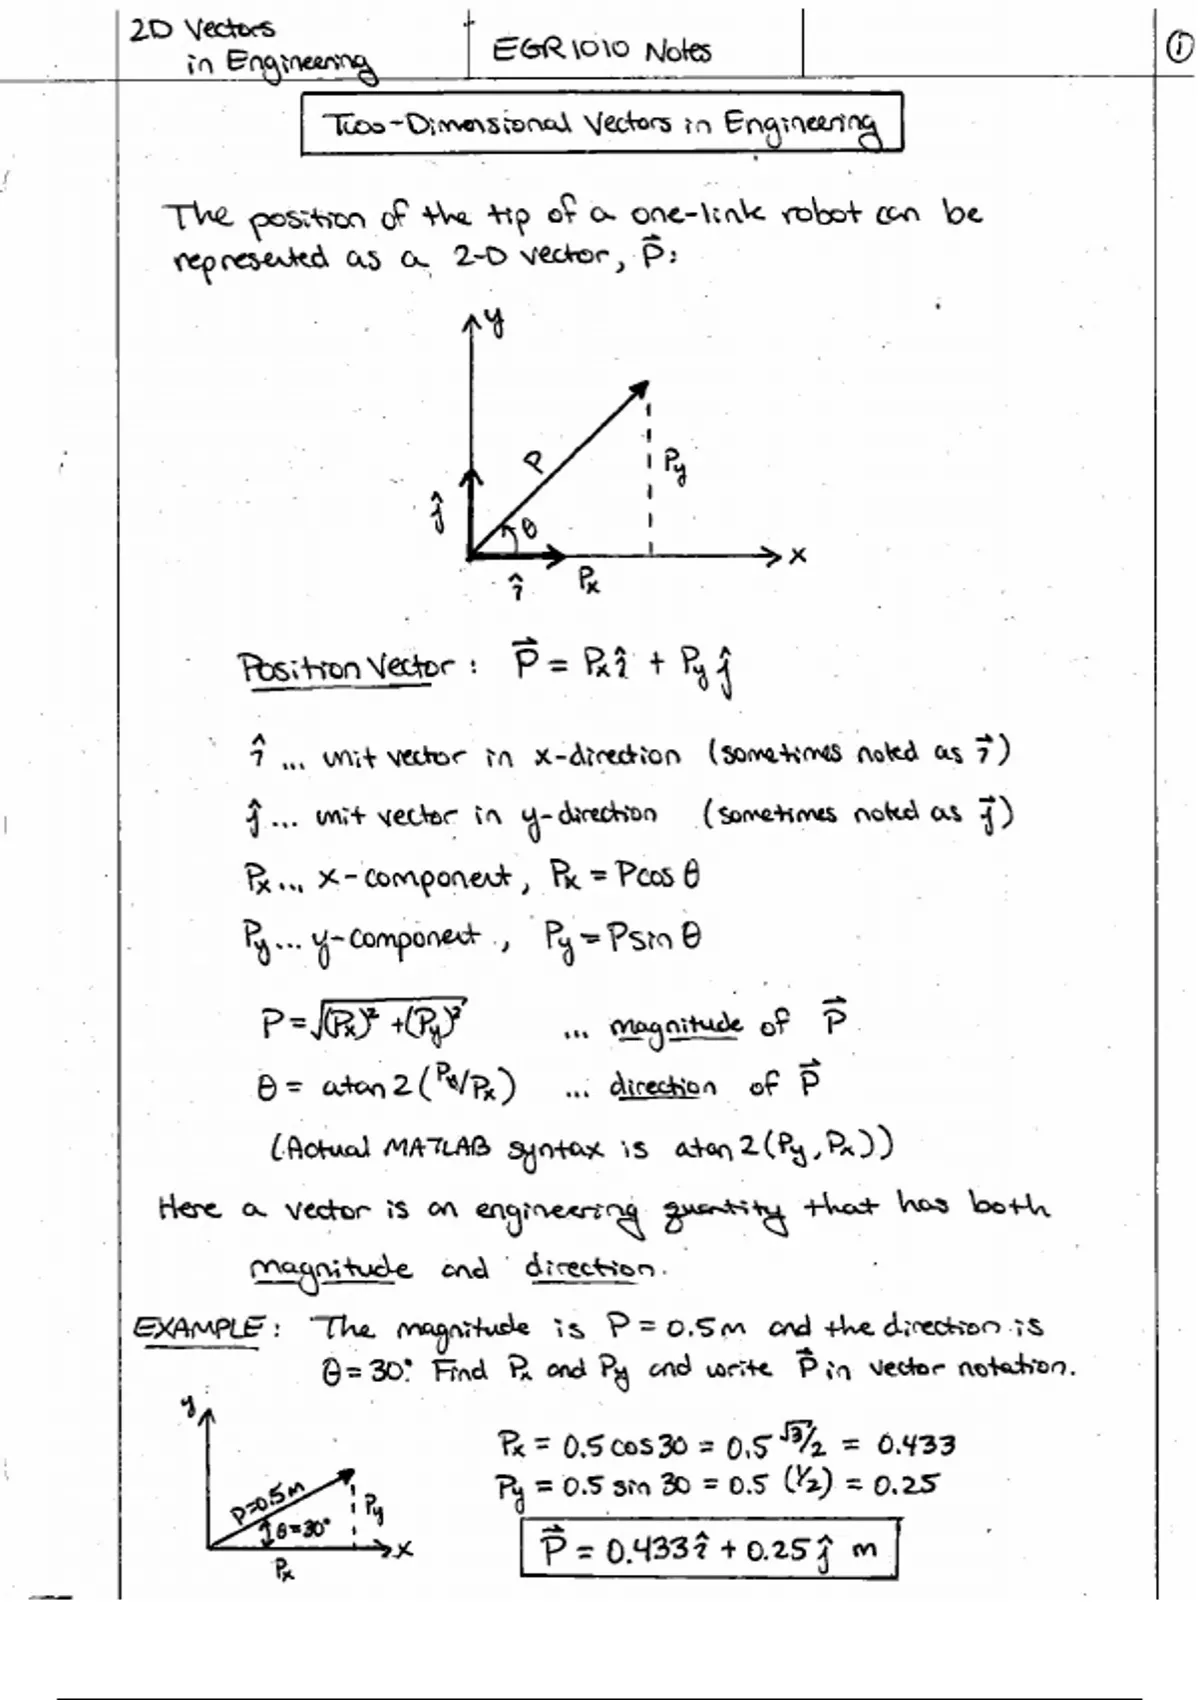 2D Vectors
in Engineering
EGR1010 Notes
1
Two-Dimensional Vectors in Engineering
The position of the tip of a one-link robot can be
represented as a 2-D vector, P⃗:
y
P
Py
ĵ
θ
x
î
Px
Position Vector: P⃗ = Pxî + Pyĵ
î ... unit vector in x-direction (sometimes noted as i⃗)
ĵ ... unit vector in y-direction (sometimes noted as j⃗)
Px ... x-component, Px = Pcos θ
Py ... y-component, Py = Psin θ
P = √(Px)² + (Py)² ... magnitude of P⃗
θ = atan2(Py/Px) ... direction of P⃗
(Actual MATLAB syntax is atan2(Py, Px))
Here a vector is an engineering quantity that has both
magnitude and direction.
EXAMPLE: The magnitude is P = 0.5m and the direction is
θ = 30°. Find Px and Py and write P⃗ in vector notation.
y
P=0.5m
Py
θ=30°
x
Px
Px = 0.5 cos30 = 0.5 √3/2 = 0.433
Py = 0.5 sin 30 = 0.5 (1/2) = 0.25
P⃗ = 0.433î + 0.25ĵ m